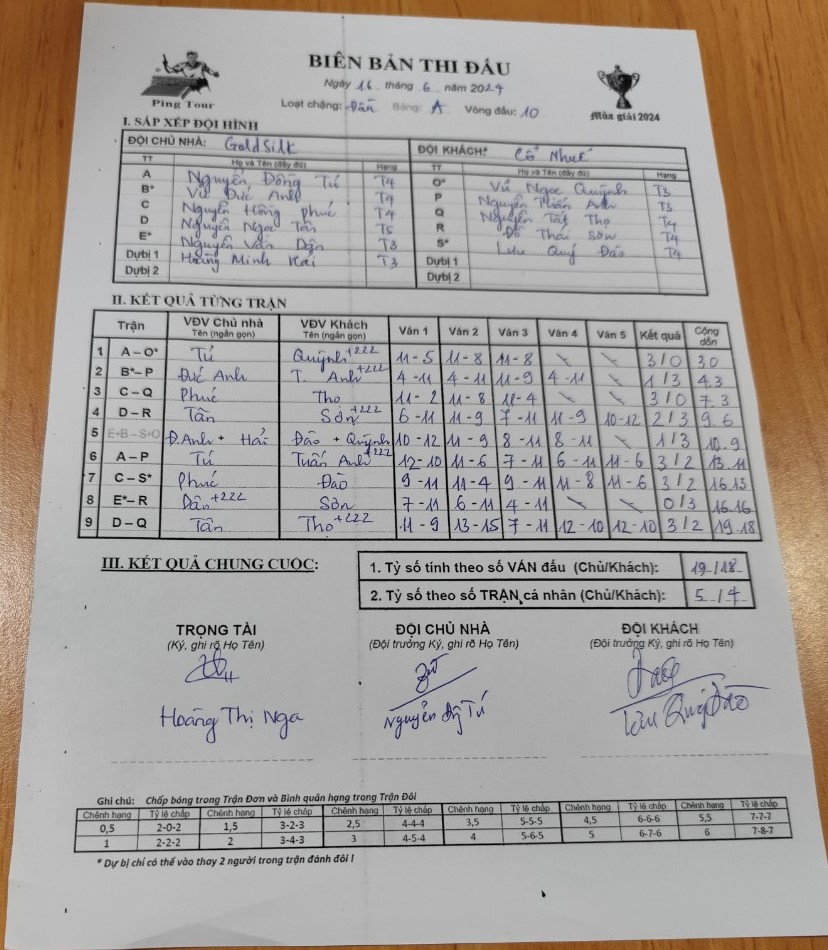 Ping Tour
BIÊN BẢN THI ĐẤU
Ngày 16 tháng 6 năm 2024
Loạt chặng: Dân Bảng: A Vòng đấu: 10
Mùa giải 2024
I. SẮP XẾP ĐỘI HÌNH
ĐỘI CHỦ NHÀ: GoldSilk ĐỘI KHÁCH: Cổ Nhuế
TT Họ và Tên (đầy đủ) Hạng TT Họ và Tên (đầy đủ) Hạng
A Nguyễn Đông Tú T4 O* Vũ Ngọc Quỳnh T3
B* Vũ Đức Anh T4 P Nguyễn Tuấn Anh T3
C Nguyễn Hồng Phúc T4 Q Nguyễn Tất Thọ T4
D Nguyễn Ngọc Tân T5 R Đỗ Thái Sơn T4
E* Nguyễn Văn Dân T3 S* Lưu Quý Đào T4
Dựbị 1 Hoàng Minh Hải T3 Dựbị 1
Dựbị 2 Dựbị 2
II. KẾT QUẢ TỪNG TRẬN
Trận VĐV Chủ nhà Tên (ngắn gọn) VĐV Khách Tên (ngắn gọn) Ván 1 Ván 2 Ván 3 Ván 4 Ván 5 Kết quả Cộng dồn
1 A – O* Tú Quỳnh+222 11-5 11-8 11-8 3/0 3.0
2 B*– P Đức Anh T. Anh+222 4-11 4-11 11-9 4-11 1/3 4.3
3 C – Q Phúc Thọ 11-2 11-8 11-4 3/0 7.3
4 D – R Tân Sơn+222 6-11 11-9 7-11 11-9 10-12 2/3 9.6
5 E+B – S+O Đ.Anh + Hải Đào + Quỳnh 10-12 11-9 8-11 8-11 1/3 10.9
6 A – P Tú Tuấn Anh+222 12-10 11-6 7-11 6-11 11-6 3/2 13.11
7 C – S* Phúc Đào 9-11 11-4 9-11 11-8 11-6 3/2 16.13
8 E*– R Dân+222 Sơn 7-11 6-11 4-11 0/3 16.16
9 D – Q Tân Thọ+222 11-9 13-15 7-11 12-10 12-10 3/2 19.18
III. KẾT QUẢ CHUNG CUỘC:
1. Tỷ số tính theo số VÁN đấu (Chủ/Khách): 19/18
2. Tỷ số theo số TRẬN cá nhân (Chủ/Khách): 5/4
TRỌNG TÀI ĐỘI CHỦ NHÀ ĐỘI KHÁCH
(Ký, ghi rõ Họ Tên) (Đội trưởng Ký, ghi rõ Họ Tên) (Đội trưởng Ký, ghi rõ Họ Tên)
Hoàng Thị Nga Nguyễn Tú Lưu Quý Đào
Ghi chú: Chấp bóng trong Trận Đơn và Bình quân hạng trong Trận Đôi
Chênh hạng Tỷ lệ chấp Chênh hạng Tỷ lệ chấp Chênh hạng Tỷ lệ chấp Chênh hạng Tỷ lệ chấp Chênh hạng Tỷ lệ chấp Chênh hạng Tỷ lệ chấp
0,5 2-0-2 1,5 3-2-3 2,5 4-4-4 3,5 5-5-5 4,5 6-6-6 5,5 7-7-7
1 2-2-2 2 3-4-3 3 4-5-4 4 5-6-5 5 6-7-6 6 7-8-7
* Dự bị chỉ có thể vào thay 2 người trong trận đánh đôi !